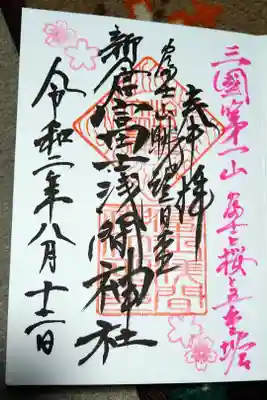 三國第一山 富士と桜と五重塔
奉拝
富士山眺望日本一
新倉富士浅間神社
令和二年八月十二日